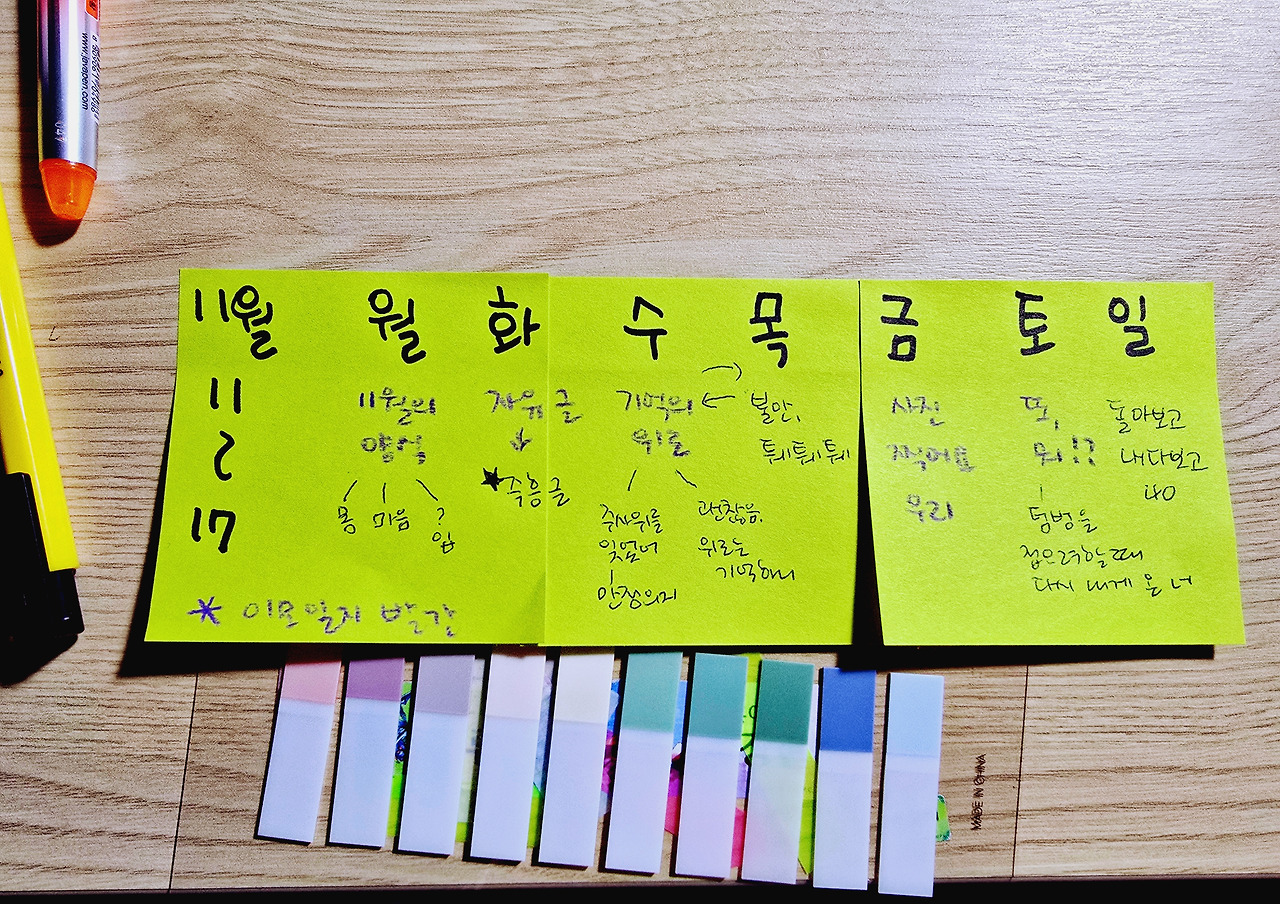 11월 월 화 수 목 금 토 일
11
2
17
11월의
양식
몸 마음 ?
입
자유글
↓
★즉흥글
기억의
위로
주사위를
잊었어
안정의지
괜찮음.
위로는
기억하니
불안,
퉤퉤퉤
사진
찍어요
우리
또,
뭐!?
텀벙을
접으려할때
다시 내게 온 너
돌아보고
내다보고
40
* 이모일지 발간
www.javapen.com
MADE IN CHINA